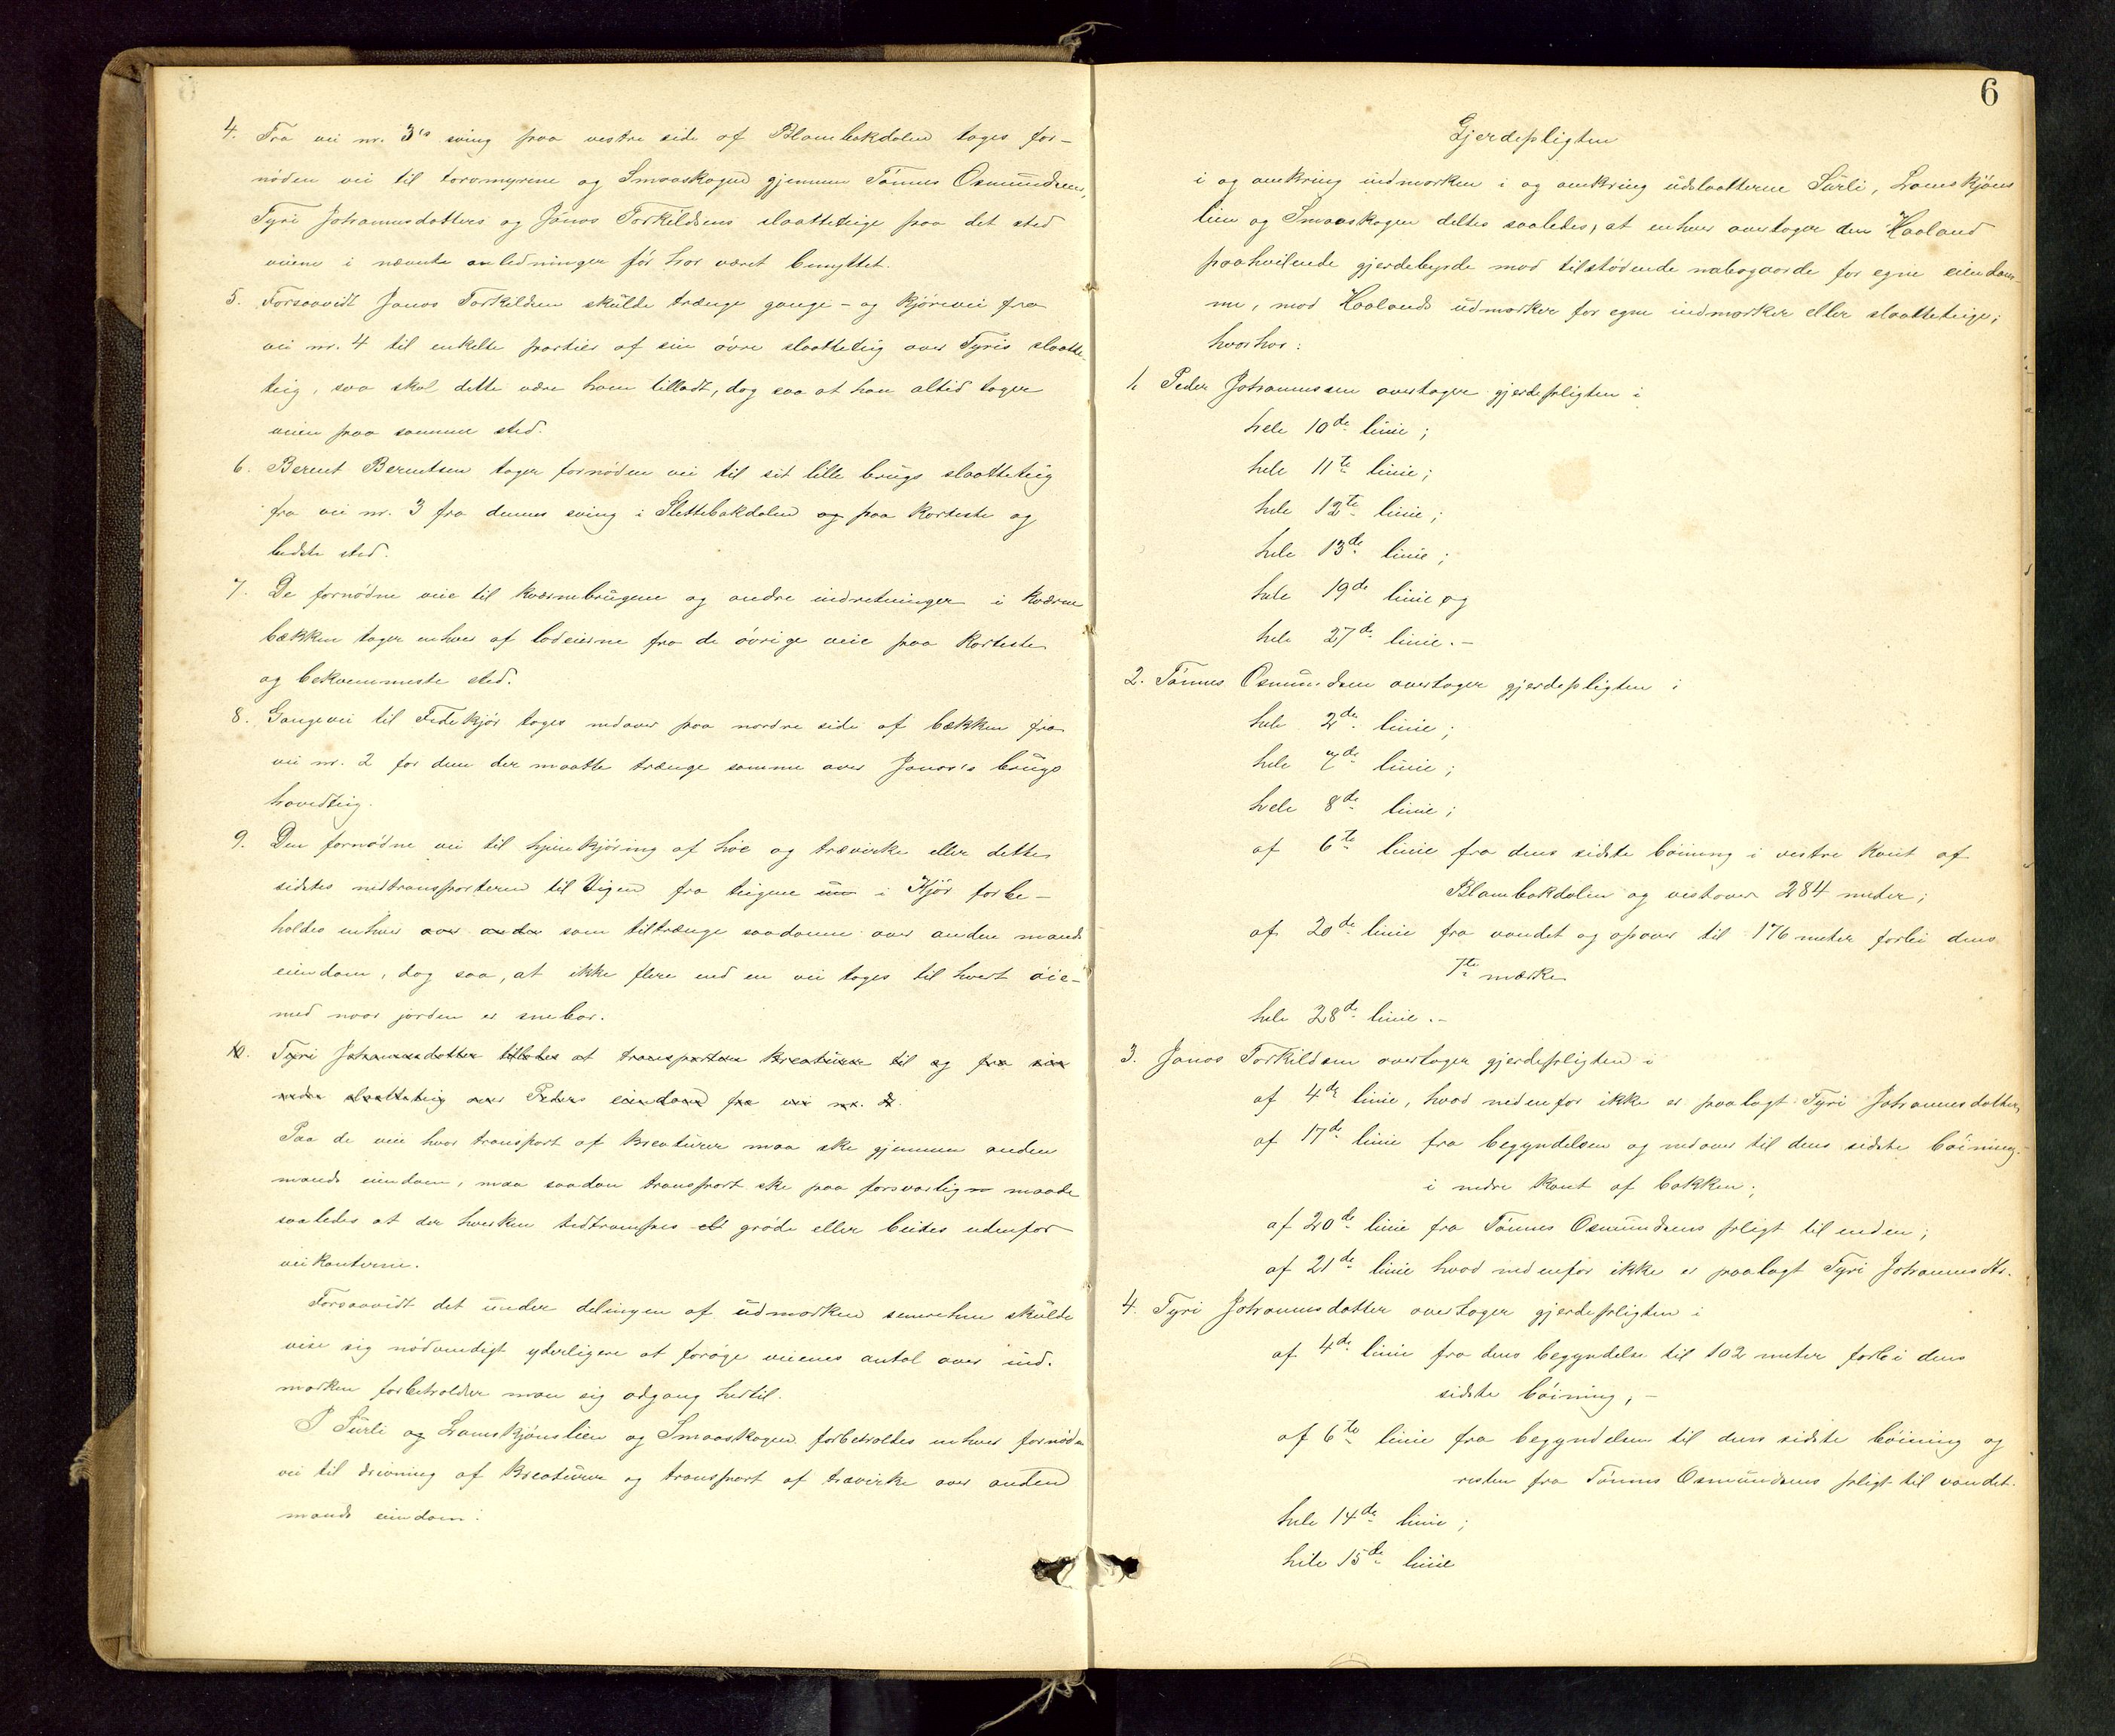 4. Fra vei nr. 3's sving paa vestre side af Blambakdalen tages for-
nöden vei til torvmyrene og Smaaskogen gjennem Tönnes Osmundsens,
Tyri Johannesdatters og Jonas Torkildsens slaatteteige paa det sted
veiene i nævnte anledninger för har været benyttet.
5. Forsaavidt Jonas Torkildsen skulde trænge gange- og kjörevei fra
vei nr. 4 til enkelte partier af sin övre slaatteteig over Tyris slaatte-
teig, saa skal dette være ham tilladt, dog saa at han altid tager
veien paa samme sted.
6. Berent Berentsen tager fornöden vei til sit lille brugs slaatteteig
fra vei nr. 3 fra dennes sving i Slettebakdalen og paa korteste og
bedste sted.
7. De fornödne veie til kværnebrugene og andre indretninger i Kværne
bækken tager enhver af lodeierne fra de övrige veie paa korteste
og bekvemmeste sted.
8. Gangevei til Fedekjör tages nedover paa nordre side af bækken fra
vei nr. 2 for dem der maatte trænge samme over Jonas's brugs
hovedteig.
9. Den fornödne vei til hjemkjöring af höe og trævirke eller dette
sidstes nedtransporteren til Vigen fra teigene i Kjör forbe-
holdes enhver over andre som tiltrænge saadanne over anden mands
eiendom, dog saa, at ikke flere end en vei tages til hvert öie-
med naar jorden er snebar.
10. Tyri Johannesdatter tillades at transportere kreaturer til og fra sin
nedre slaatteteig over Peders eiendom fra vei nr. 2.
Paa de veie hvor transport af kreaturer maa ske gjennem anden
mands eiendom, maa saadan transport ske paa forsvarlig maade
saaledes at der hverken nedtrampes grøde eller beites udenfor
veikanterne.
Forsaavidt det under delingen af udmarken senerehen skulde
vise sig nödvendigt yderligere at foröge veienes antal over ind-
marken forbeholder man sig adgang hertil.
I Surli og Lamskjönslien og Smaaskogen forbeholdes enhver fornöden
vei til drivning af kreaturer og transport af trævirke over anden
mands eiendom.
6
Gjerdepligten
i og omkring indmarken i og omkring udslaatterne Surli, Lamskjöns
lien og Smaaskogen deltes saaledes, at enhver overtager den Haaland
paahvilende gjerdebyrde mod tilstødende nabogaarde for egne eiendom-
me, mod Haalands udmarker for egne indmarker eller slaatteteige;
hvorhos:
1. Peder Johannessen overtager gjerdepligten i
hele 10de linie;
hele 11te linie;
hele 12te linie;
hele 13de linie;
hele 19de linie og
hele 27de linie.-
2. Tönnes Osmundsen overtager gjerdepligten i
hele 2de linie;
hele 7de linie;
hele 8de linie;
af 6te linie fra dens sidste böining i vestre kant af
Blambakdalen og vestover 284 meter;
af 20de linie fra vandet og opover til 176 meter forbi dens
7te mærke
hele 28de linie.-
3. Jonas Torkildsen overtager gjerdepligten i
af 4de linie, hvad nedenfor ikke er paalagt Tyri Johannesdatter,
af 17de linie fra begyndelsen og nedover til dens sidste böining
i nedre kant af bakken;
af 20de linie fra Tönnes Osmundsens pligt til enden;
af 21de linie hvad nedenfor ikke er paalagt Tyri Johannesdtr.
4. Tyri Johannesdatter overtager gjerdepligten i
af 4de linie fra dens begyndelse til 102 meter forbi dens
sidste böining;-
af 6te linie fra begyndelsen til dens sidste böining og
resten fra Tönnes Osmundsens pligt til vandet.
hele 14de linie;
hele 15de linie